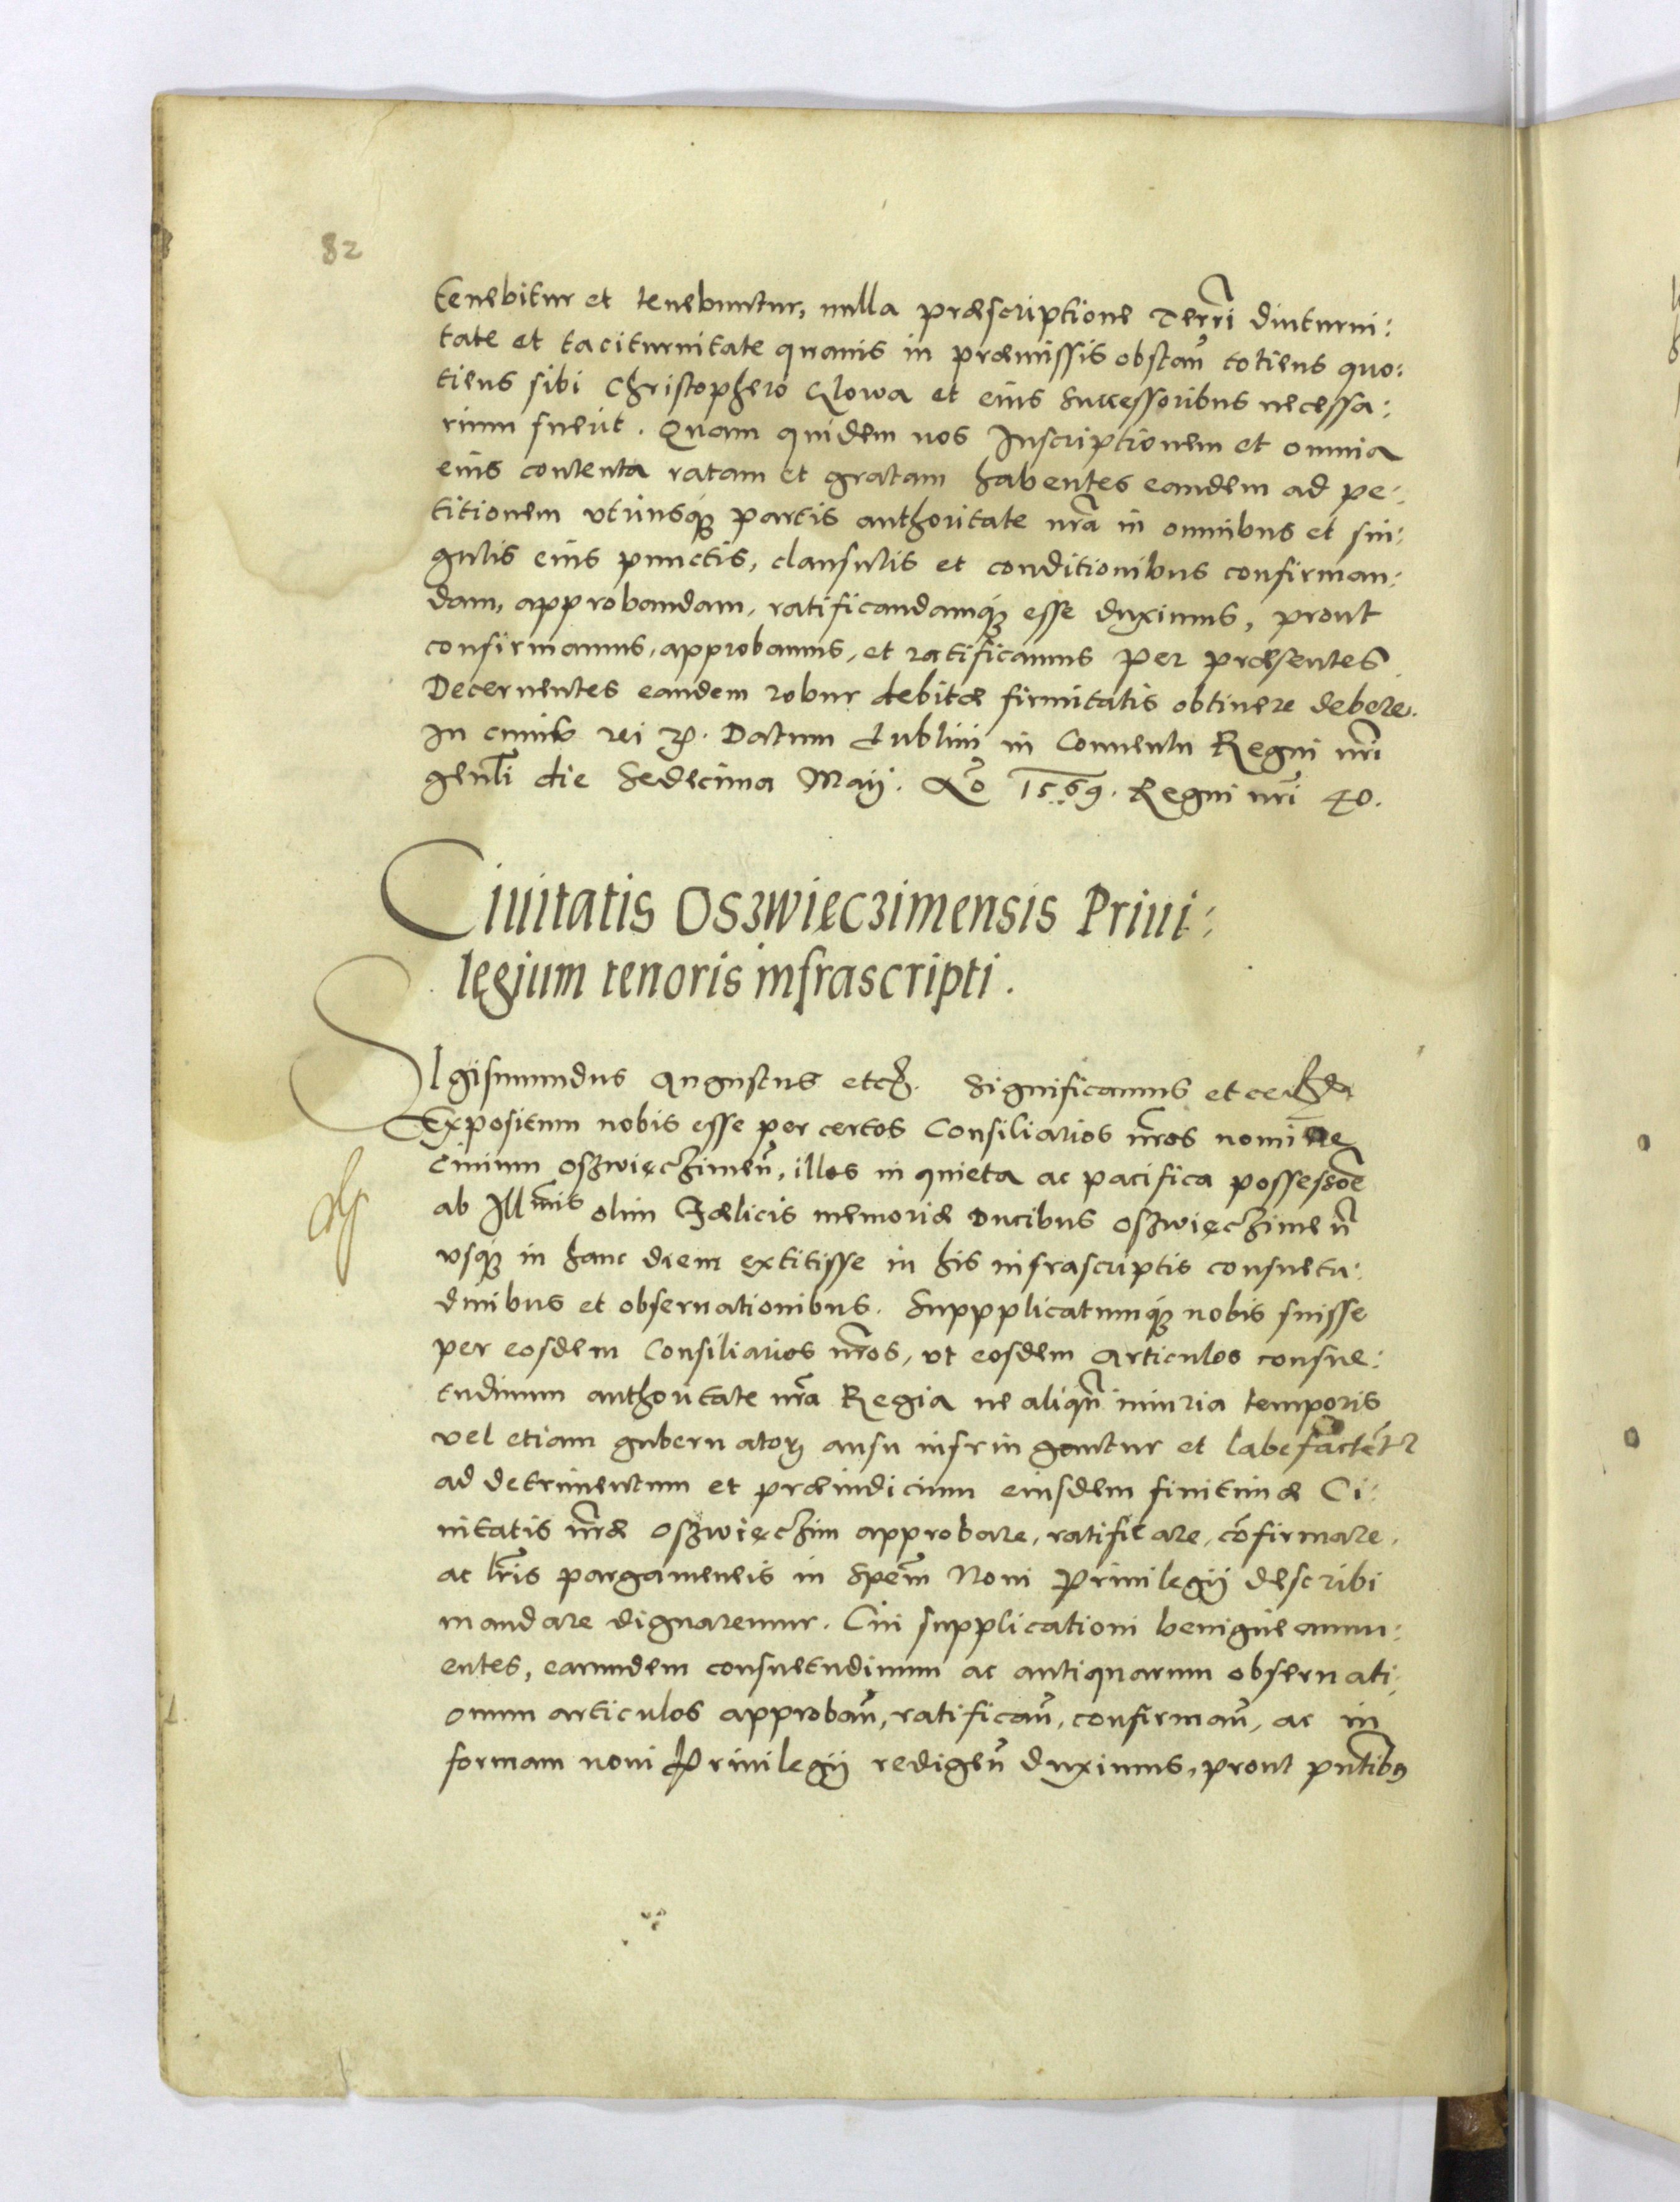 82
tenebitur et tenebuntur, nulla præscriptione Terrī diuturni:
tate et taciturnitate quauis in præmissis obstañ totiens quo:
tiens sibi Christophero Glowa et eius Successoribus necessa:
rium fuerit. Quam quidem nos Inscriptionem et omnia
eius contenta ratam et gratam habentes eandem ad pe:
titionem vtriusq3 partis authoritate nrā in omnibus et sin:
gulis eius punctis, clausulis et conditionibus confirman:
dam, approbandam, ratificandamq3 esse duximus, prout
confirmamus, approbamus, et ratificamus per præsentes.
Decernentes eandem robur debitæ firmitatis obtinere debere.
In cuius rei etc. Datum Lublini in Conuentu Regni nrī
genlī die Sedecima Maij. Aō 1569. Regni nrī 40.
Ciuitatis Oszwięczimensis Priui:
legium tenoris infrascripti.
SIgismundus Augustus etc. Significamus etc.
Expositum nobis esse per certos Consiliarios nrōs nomine
Ciuium Oszwięczimeñ, illos in quieta ac pacifica possessōe
ab Illmīs olim Fælicis memoriæ Ducibus Oszwięczimeñ
vsq3 in hanc diem extitisse in his infrascriptis consuetu:
dinibus et obseruationibus. Suppplicatumq3 nobis fuisse
per eosdem Consiliarios nrōs, vt eosdem Articulos consue:
tudinum authoritate nrā Regia ne aliqñ iniuria temporis
vel etiam gubernatorꝝ ausu infringantur et labefactēt2
ad detrimentum et præiudicium eiusdem finitimæ Ci:
uitatis nrǣ Oszwięczim approbare, ratificare, cōfirmare,
ac lrīs pargameneis in Spēm Noui Priuilegij describi
mandare dignaremur. Cui supplicationi benigne annu:
entes, earundem consuetudinum ac antiquarum obseruati:
onum articulos approbañ, ratificañ, confirmañ, ac in
formam noui Priuilegij redigeñ duximus, prout pñtibꝯ